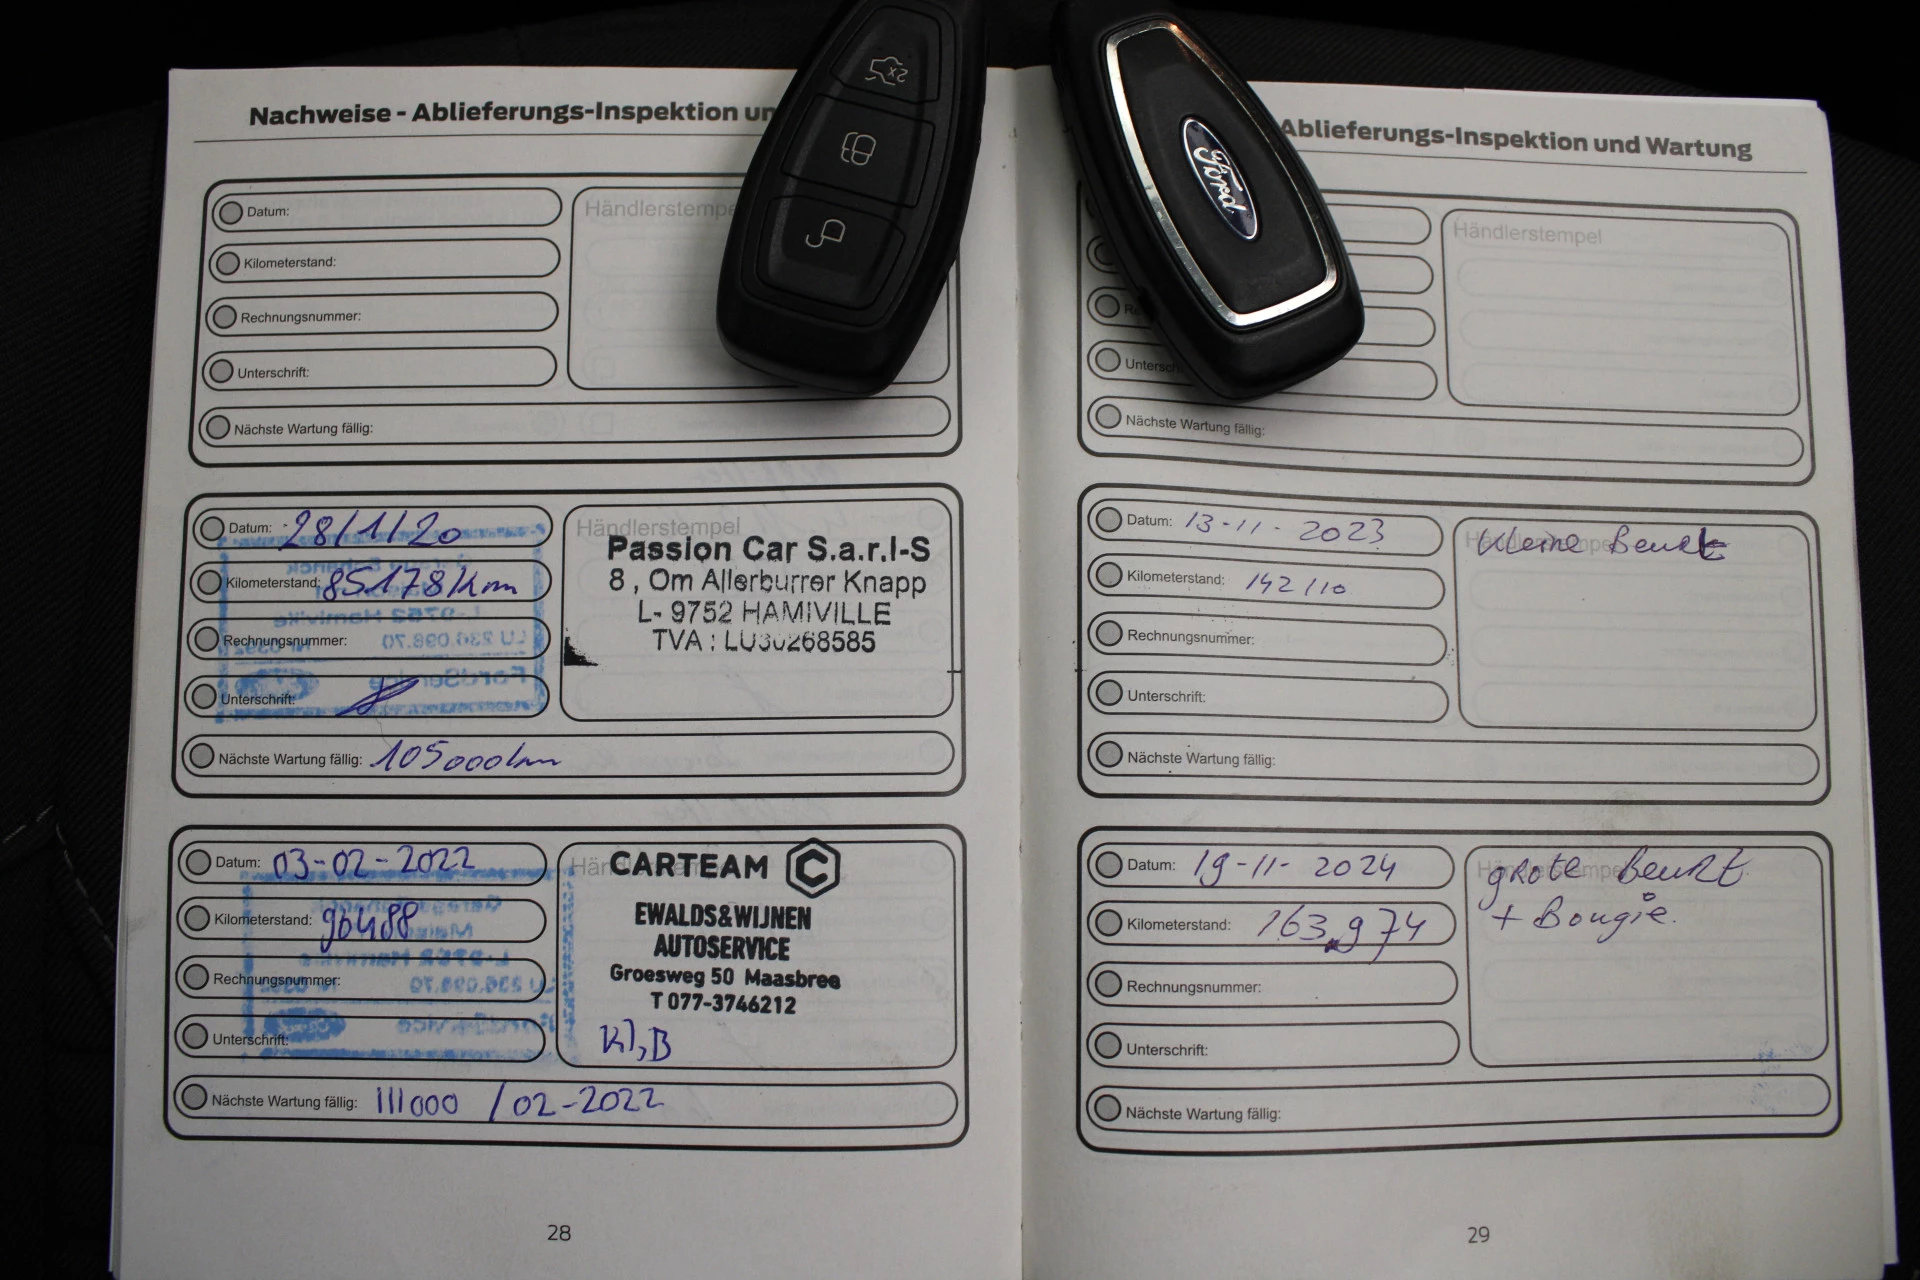 Nachweise - Ablieferungs-Inspektion un
Datum:
Kilometerstand:
Rechnungsnummer:
Unterschrift:
Nächste Wartung fällig:
Händlerstempe
x2
Datum: 28/1/20
Kilometerstand: 85178 km
Rechnungsnummer:
Unterschrift:
Nächste Wartung fällig: 105000km
Händlerstempel
Passion Car S.a.r.l-S
8, Om Allerburrer Knapp
L- 9752 HAMIVILLE
TVA : LU30268585
Datum: 03-02-2022
Kilometerstand: 96488
Rechnungsnummer:
Unterschrift:
Nächste Wartung fällig: 111000 / 02-2022
CARTEAM C
EWALDS&WIJNEN
AUTOSERVICE
Groesweg 50 Maasbree
T 077-3746212
Kl,B
28
Ablieferungs-Inspektion und Wartung
Ford
Händlerstempel
Nächste Wartung fällig:
Datum: 13-11-2023
Kilometerstand: 142110
Rechnungsnummer:
Unterschrift:
Nächste Wartung fällig:
Kleine Beurt
Datum: 19-11-2024
Kilometerstand: 163.974
Rechnungsnummer:
Unterschrift:
Nächste Wartung fällig:
grote Beurt
+ Bougie.
29